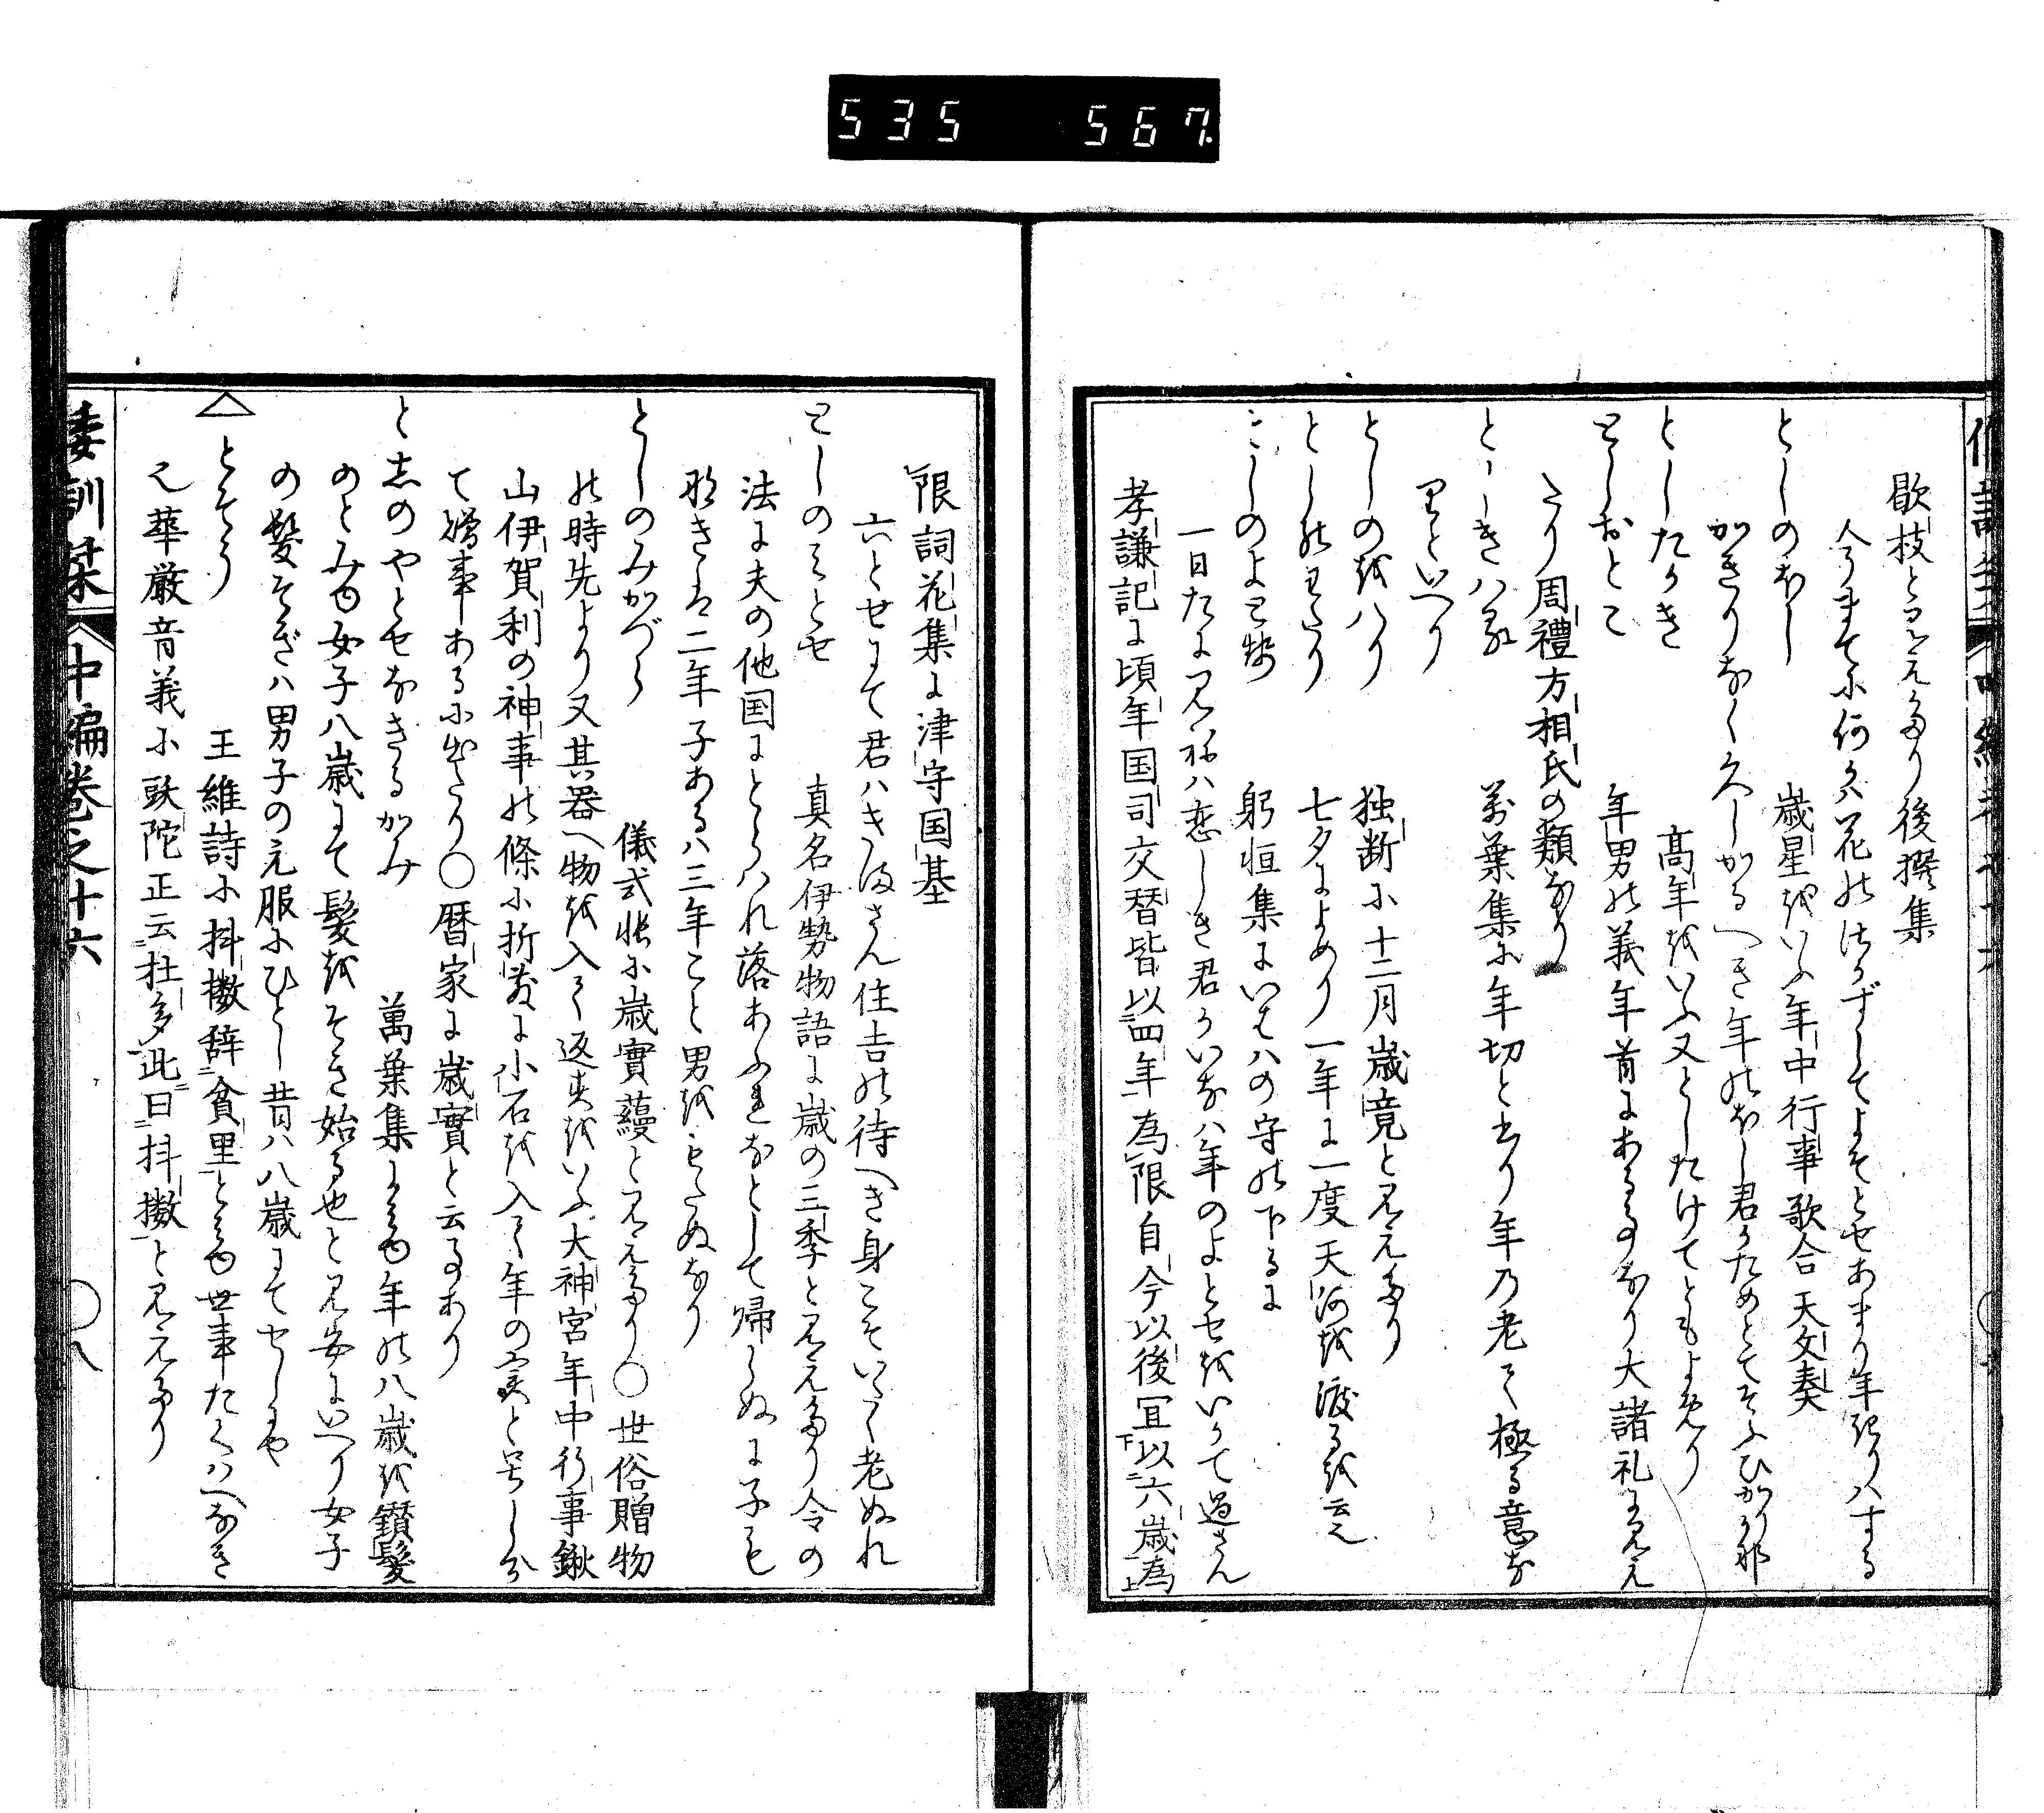 535 567
歇枝と見えたり後撰集
今まてに何かハ花のほかずしてよそとせあまり年切りハする
としのほし 歳星をいふ年中行事歌合天文奏
かきりなく久しかるへき年のほし君かためとてそふひかりかな
としたかき 高年をいふ又としたけてともよめり
としおとこ 年男の義年首にある事なり大諸礼に見え
たり周禮方相氏の類なり
としきハる 萬葉集に年切と書り年乃老て極る意な
りといへり
としのをハり 独断に十二月歳竟と見えたり
としのわたり 七夕によめり一年に一度天河を渡るを云也
としのよとせ 躬恒集にいなハの守の下るに
一日たに見ねハ恋しき君かいなハ年のよとせをいかて過さん
孝謙記に頃年国司交替皆以四年為限自今以後宜以六歳為
限詞花集に津守国基
六とせにて君ハきまさん住吉の待へき身こそいたく老ぬれ
としのみとせ 真名伊勢物語に歳の三季と見えたり令の
法に夫の他国にとらハれ落あふれなとして帰らぬに子も
なきは二年子あるハ三年こと男をもたぬなり
としのみかづら 儀式帳に歳實蘰と見えたり○世俗贈物
の時先より又其器へ物を入て返すをいふ大神宮年中行事鍬
山伊賀利の神事の條に折敷に小石を入て年の実と号しか
て獦事あるに出たり○暦家に歳實と云事あり
と志のやとせなきるかみ 萬葉集によめり年の八歳を鑚髪
のとみゆ女子八歳にて髪をそき始る也と見安にいへり女子
の髪そぎハ男子の元服にひとし昔ハ八歳にてせしにや
△とそう 王維詩に抖擻辞貧里とみゆ世事たくハへなき
也華厳音義に頭陀正云杜多此曰抖擻と見えたり
倭訓栞 中編巻之十六 ○八